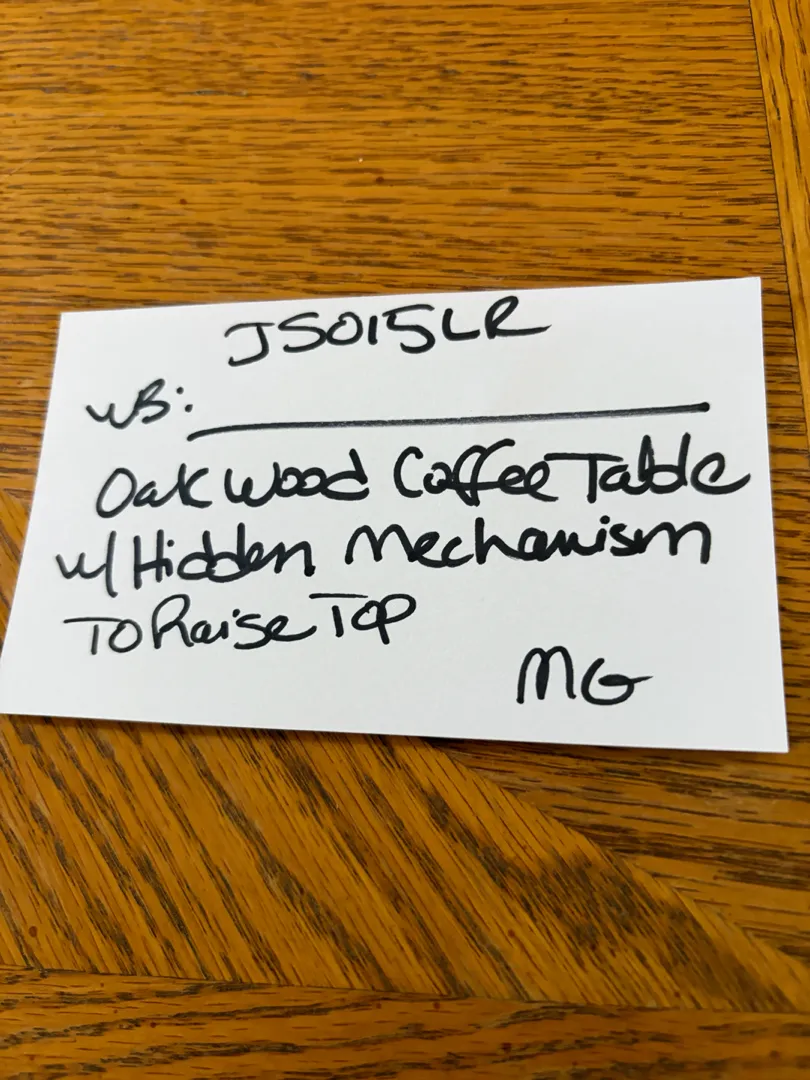 JS015LR
WB:
Oak Wood Coffee Table
w/ Hidden Mechanism
To Raise Top
MG